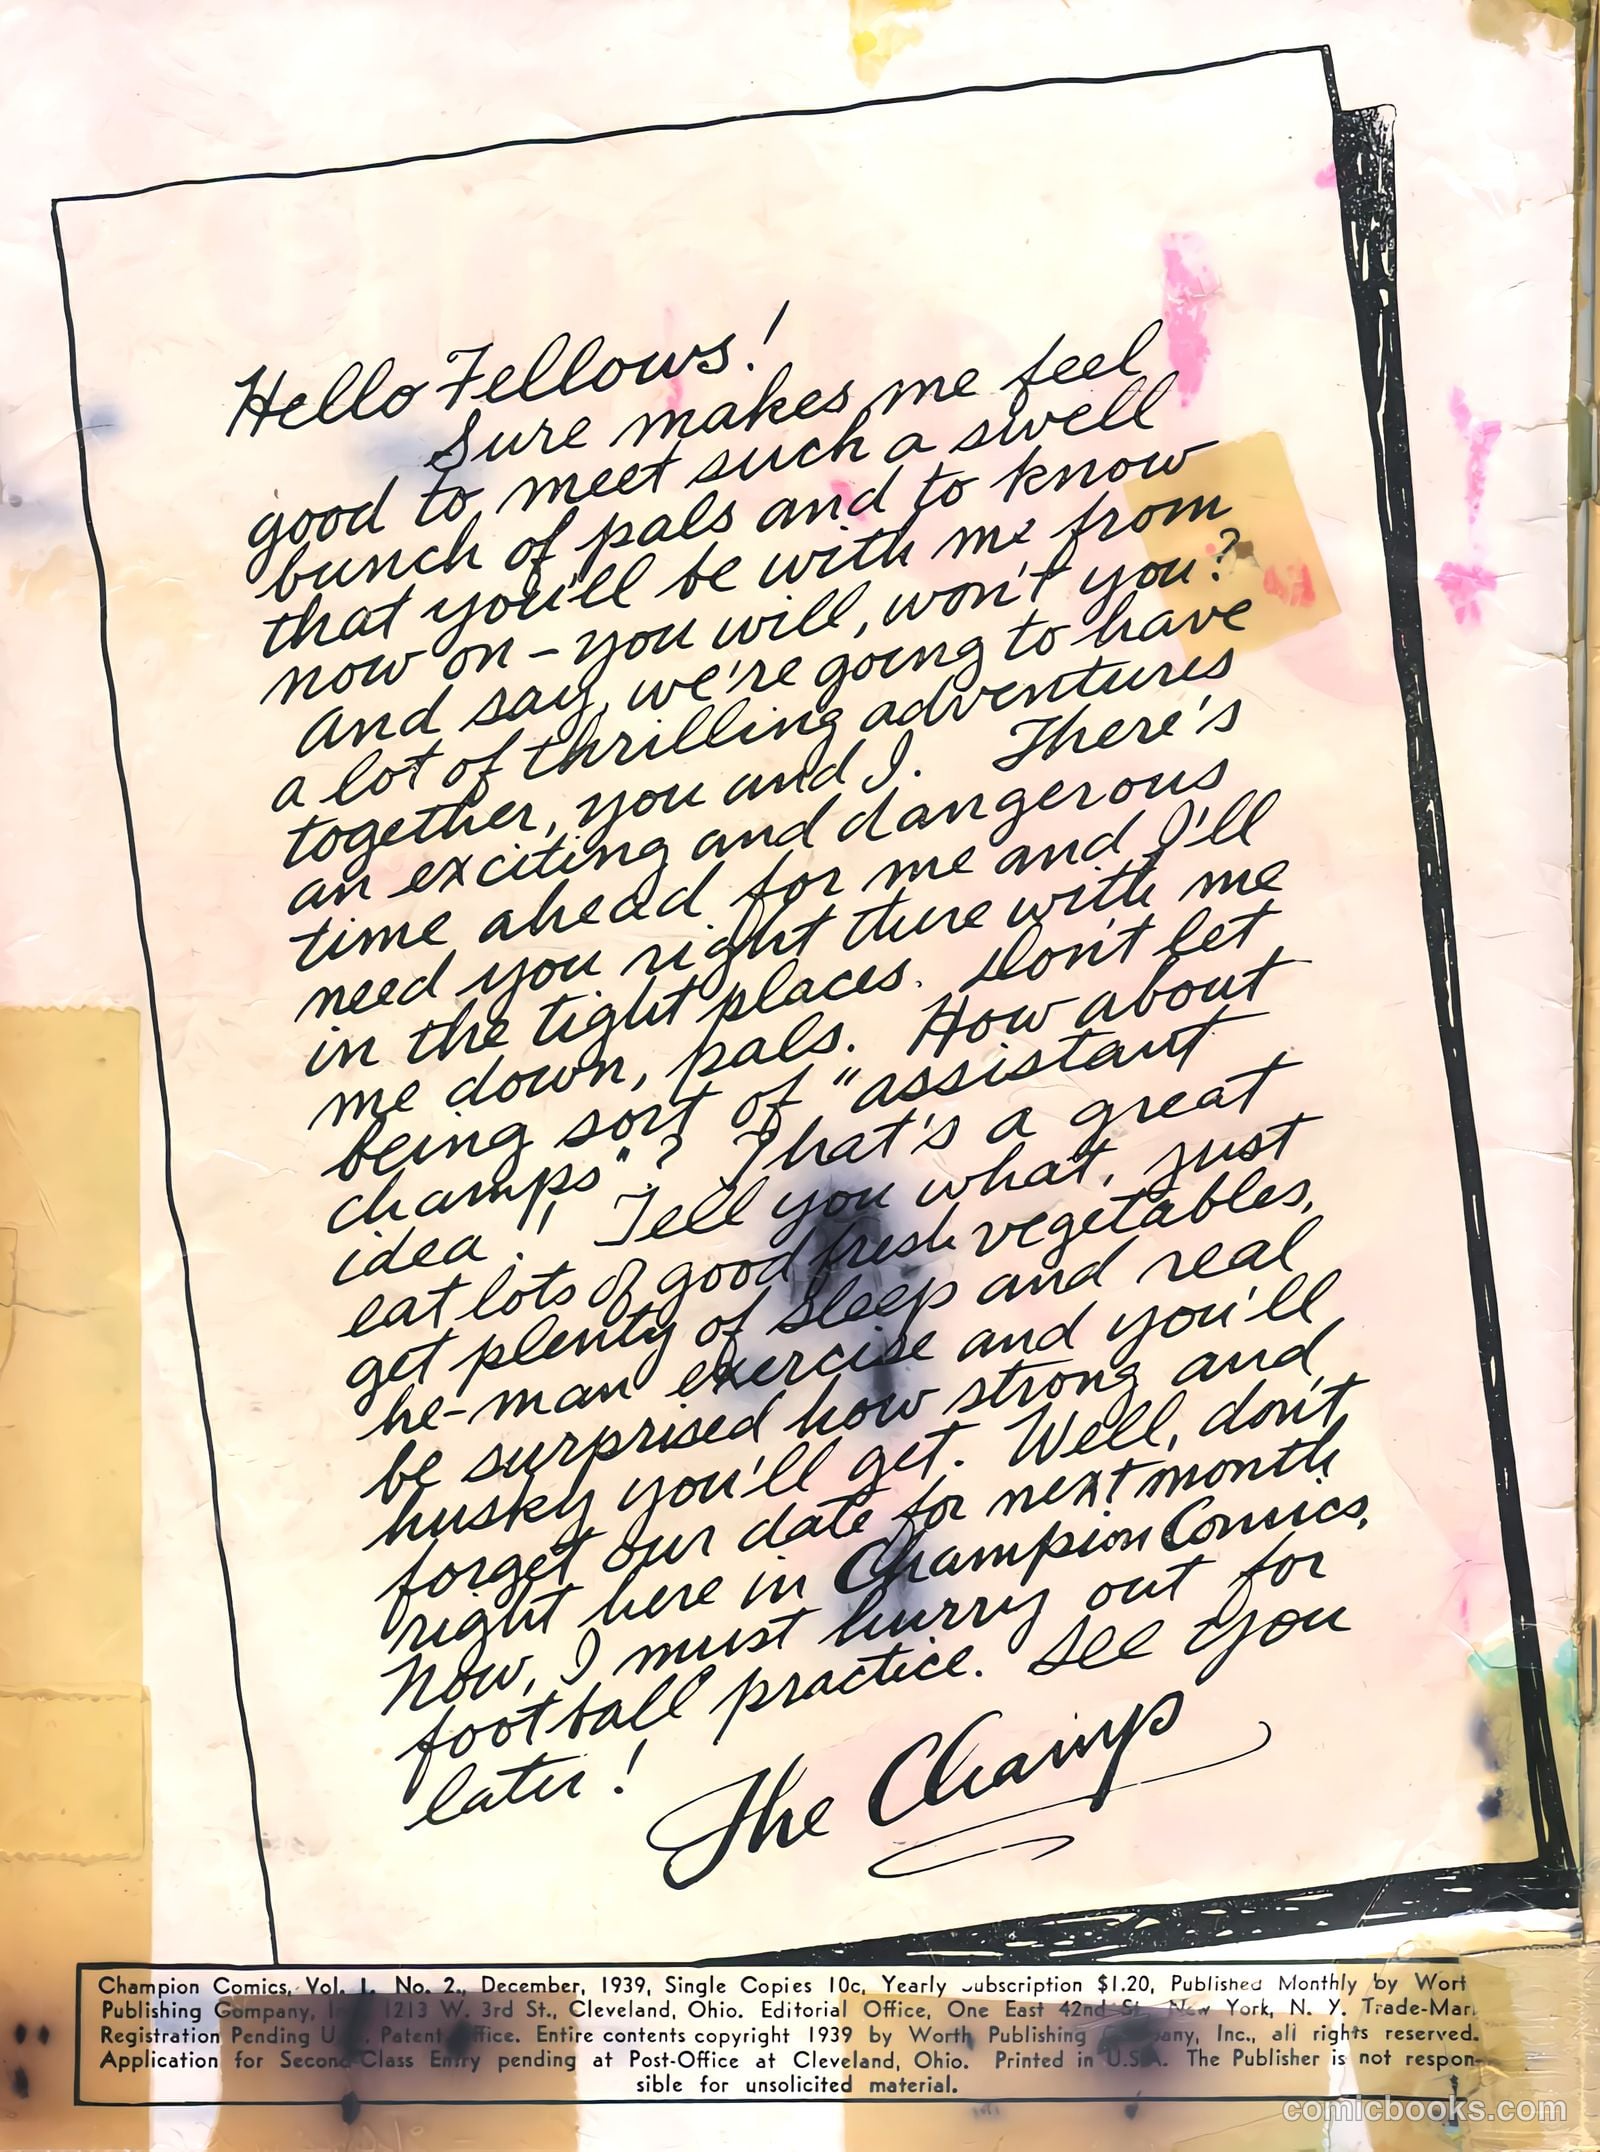 Hello Fellows!
Sure makes me feel
good to meet such a swell
bunch of pals and to know
that you'll be with me from
now on - you will, won't you?
And say, we're going to have
a lot of thrilling adventures
together, you and I. There's
an exciting and dangerous
time ahead for me and I'll
need you right there with me
in the tight places. Don't let
me down, pals. How about
being sort of "assistant
champs"? That's a great
idea!! Tell you what, just
eat lots of good fresh vegetables,
get plenty of sleep and real
he-man exercise and you'll
be surprised how strong and
husky you'll get. Well, don't
forget our date for next month
right here in Champion Comics.
Now, I must hurry out for
football practice. See you
later!
The Champ
Champion Comics, Vol. 1, No. 2., December, 1939, Single Copies 10c, Yearly Subscription $1.20, Published Monthly by Wort
Publishing Company, 1213 W. 3rd St., Cleveland, Ohio. Editorial Office, One East 42nd St., New York, N. Y. Trade-Mar
Registration Pending U.S. Patent Office. Entire contents copyright 1939 by Worth Publishing Company, Inc., all rights reserved.
Application for Second-Class Entry pending at Post-Office at Cleveland, Ohio. Printed in U.S.A. The Publisher is not respon-
sible for unsolicited material.
comicbooks.com